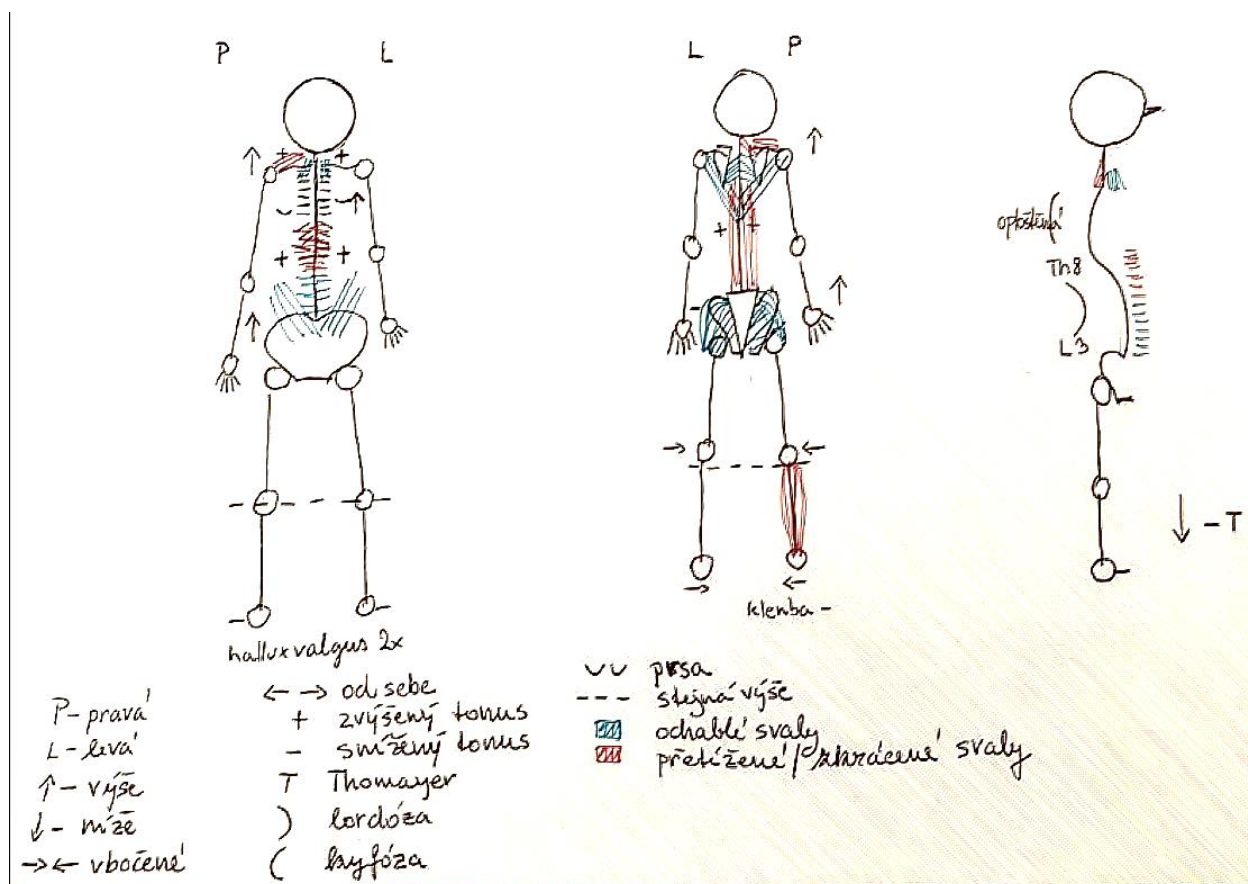 P L
L P
↑ + +
↑
↑
+ +
↑
+ +
↑
-
oploštěná (
Th8 )
L3
→ ←
→ ←
klenba -
↓ - T
hallux valgus 2x
P - pravá
L - levá
↑ - výše
↓ - níže
→← vbočené
← → od sebe
+ zvýšený tonus
- snížený tonus
T Thomayer
) lordóza
( kyfóza
prsa
--- stejná výše
ochablé svaly
přetížené / zkrácené svaly